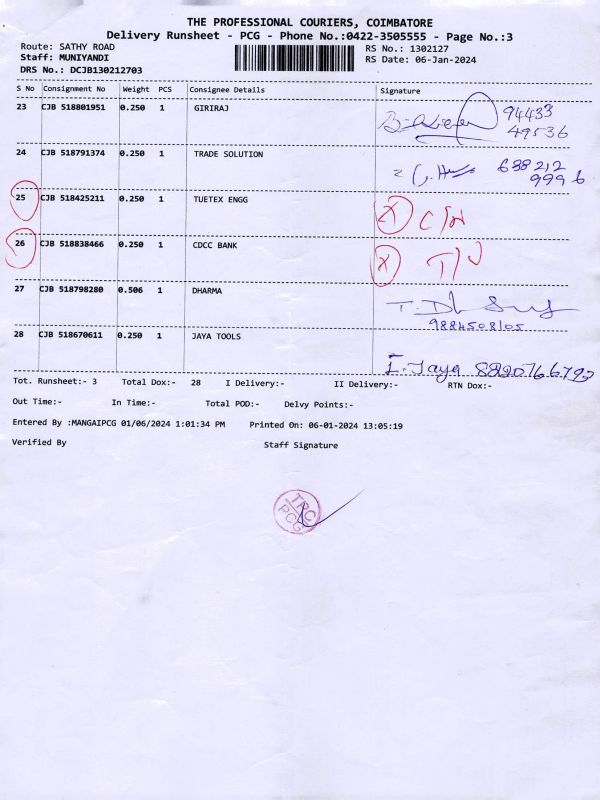 THE PROFESSIONAL COURIERS, COIMBATORE
Delivery Runsheet - PCG - Phone No.:0422-3505555 - Page No.:3
Route: SATHY ROAD RS No.: 1302127
Staff: MUNIYANDI RS Date: 06-Jan-2024
DRS No.: DCJB130212703
S No Consignment No Weight PCS Consignee Details Signature
23 CJB 518801951 0.250 1 GIRIRAJ 94433
49536
24 CJB 518791374 0.250 1 TRADE SOLUTION 638212
9996
25 CJB 518425211 0.250 1 TUETEX ENGG X
26 CJB 518838466 0.250 1 CDCC BANK X
27 CJB 518798280 0.506 1 DHARMA
9884508105
28 CJB 518670611 0.250 1 JAYA TOOLS
I. Jaya
Tot. Runsheet:- 3 Total Dox:- 28 I Delivery:- II Delivery:- RTN Dox:-
Out Time:- In Time:- Total POD:- Delvy Points:-
Entered By :MANGAIPCG 01/06/2024 1:01:34 PM Printed On: 06-01-2024 13:05:19
Verified By Staff Signature
TPC
PCG